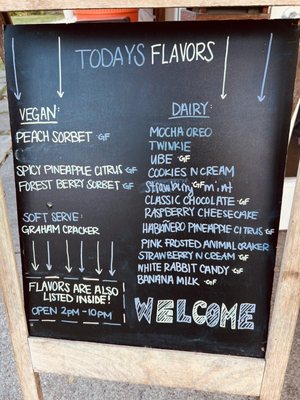 TODAYS FLAVORS
VEGAN:
PEACH SORBET GF
SPICY PINEAPPLE CITRUS GF
FOREST BERRY SORBET GF
SOFT SERVE:
GRAHAM CRACKER
FLAVORS ARE ALSO
LISTED INSIDE!
OPEN 2PM-10PM
DAIRY:
MOCHA OREO
TWINKIE
UBE GF
COOKIES N CREAM
GF mint
CLASSIC CHOCOLATE GF
RASPBERRY CHEESECAKE
HABAÑERO PINEAPPLE CITRUS GF
PINK FROSTED ANIMAL CRAKER
STRAWBERRY N CREAM GF
WHITE RABBIT CANDY GF
BANANA MILK GF
WELCOME